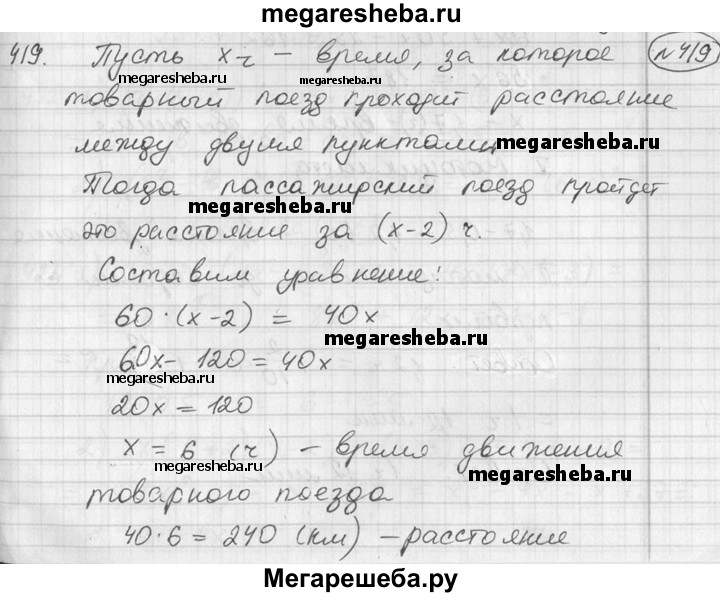 megaresheba.ru
419. Пусть x ч – время, за которое №419
megaresheba.ru
товарный поезд проходит расстояние
между двумя пунктами megaresheba.ru
Тогда пассажирский поезд пройдет
megaresheba.ru
это расстояние за (x-2) ч.
Составим уравнение:
60·(x-2) = 40x
megaresheba.ru
60x-120=40x
megaresheba.ru
20x=120
x=6 (ч) – время движения
megaresheba.ru megaresheba.ru
товарного поезда
40·6=240 (км) – расстояние
Мегарешеба.ру